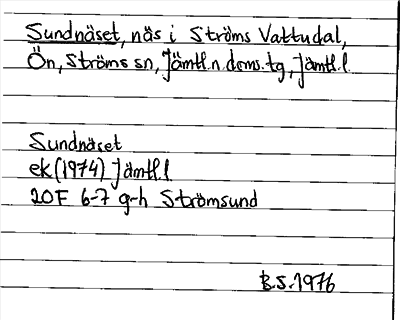 Sundnäset, näs i Ströms Vattudal,
Ön, Ströms sn, Jämtl. n. doms. tg, Jämtl. l.
Sundnäset
ek (1974) Jämtl. l
20F 6-7 g-h Strömsund
B.S. 1976